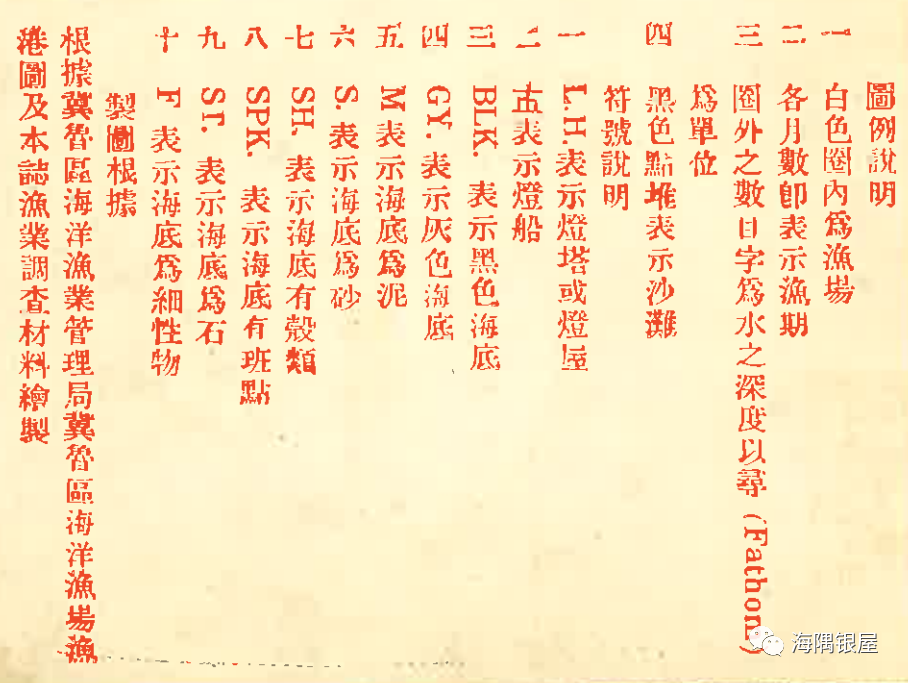 圖例說明
一 白色圈內爲漁場
二 各月數卽表示漁期
三 圈外之數目字爲水之深度以尋 (Fathom)
爲單位
四 黑色點堆表示沙灘
符號說明
一 L.H. 表示燈塔或燈屋
二 表示燈船
三 BLK. 表示黑色海底
四 GY. 表示灰色海底
五 M 表示海底爲泥
六 S. 表示海底爲砂
七 SH. 表示海底有殼類
八 SPK. 表示海底有班點
九 ST. 表示海底爲石
十 F 表示海底爲細性物
製圖根據
根據冀魯區海洋漁業管理局冀魯區海洋漁場漁
港圖及本誌漁業調查材料繪製
海隅银屋